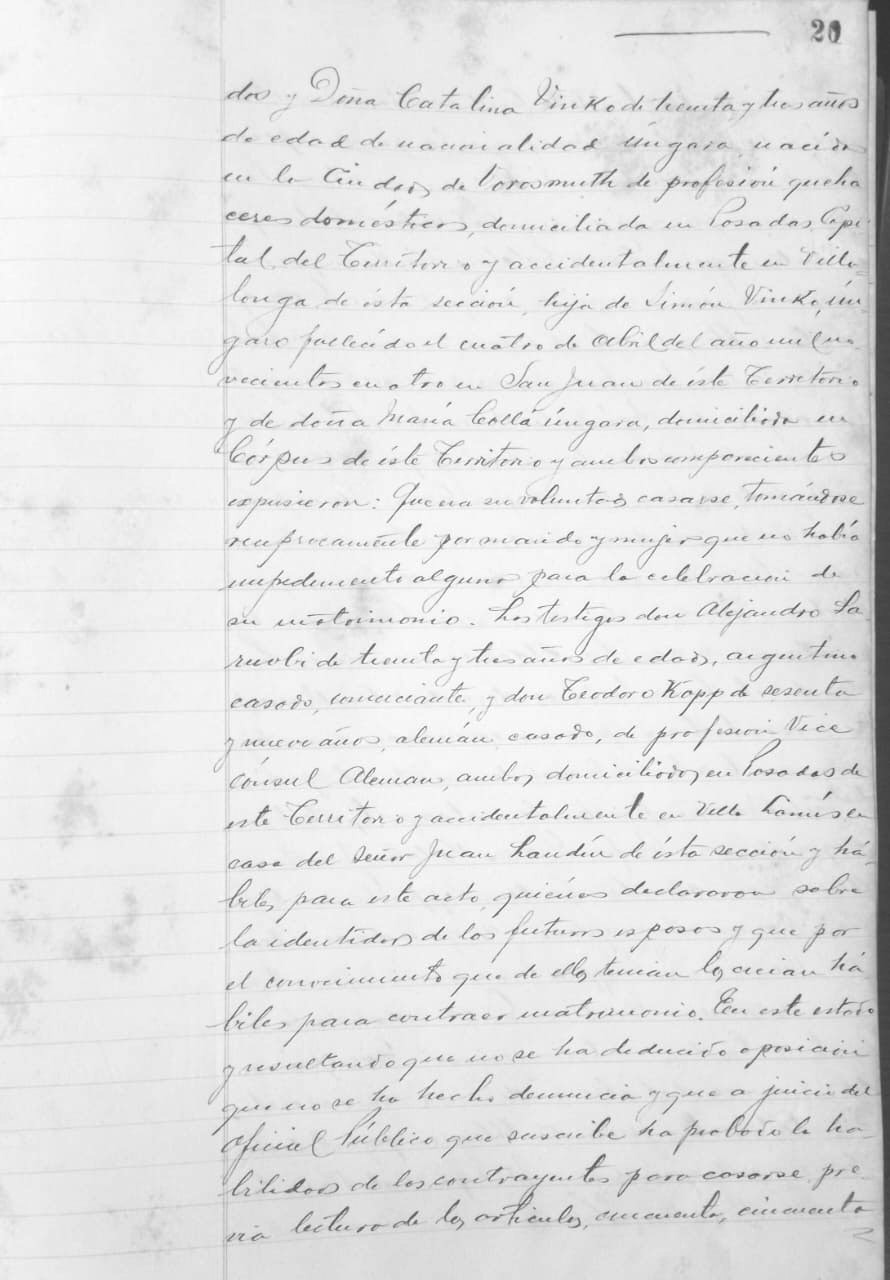 20
dos y Doña Catalina Vinko de treinta y tres años
de edad de nacionalidad úngara, nacida
en la Ciudad de Vorosmuth de profesión queha
ceres domésticos, domiciliada en Posadas, Capi-
tal del Territorio y accidentalmente en Villa-
longa de ésta sección, hija de Simón Vinko, ún-
garo fallecido el cuatro de Abril del año mil no-
vecientos cuatro en San Juan de éste Territorio
y de doña María Collá úngara, domiciliada en
Córpus de éste Territorio y ambos comparecientes
expusieron: Que era su voluntad casarse, tomándose
recíprocamente por marido y mujer que no había
impedimento alguno para la celebración de
su matrimonio. Los testigos don Alejandro La-
de treinta y tres años de edad, argentino
casado, comerciante, y don Teodoro Kopp de sesenta
y nueve años, alemán, casado, de profesión Vice
Cónsul Aleman, ambos domiciliados en Posadas de
este Territorio y accidentalmente en Villa Lanús en
casa del Señor Juan de ésta sección y há-
biles para este acto, quiénes declararon sobre
la identidad de los futuros esposos y que por
el conocimiento que de ellos tenian los creian há
biles para contraer matrimonio. En este estado
y resultando que no se ha deducido oposición
que no se ha hecho denuncia y que a juicio del
Oficial Público que suscribe ha probado la ha-
bilidad de los contrayentes para casarse, pre-
via lectura de los articulos, cincuenta, cincuenta